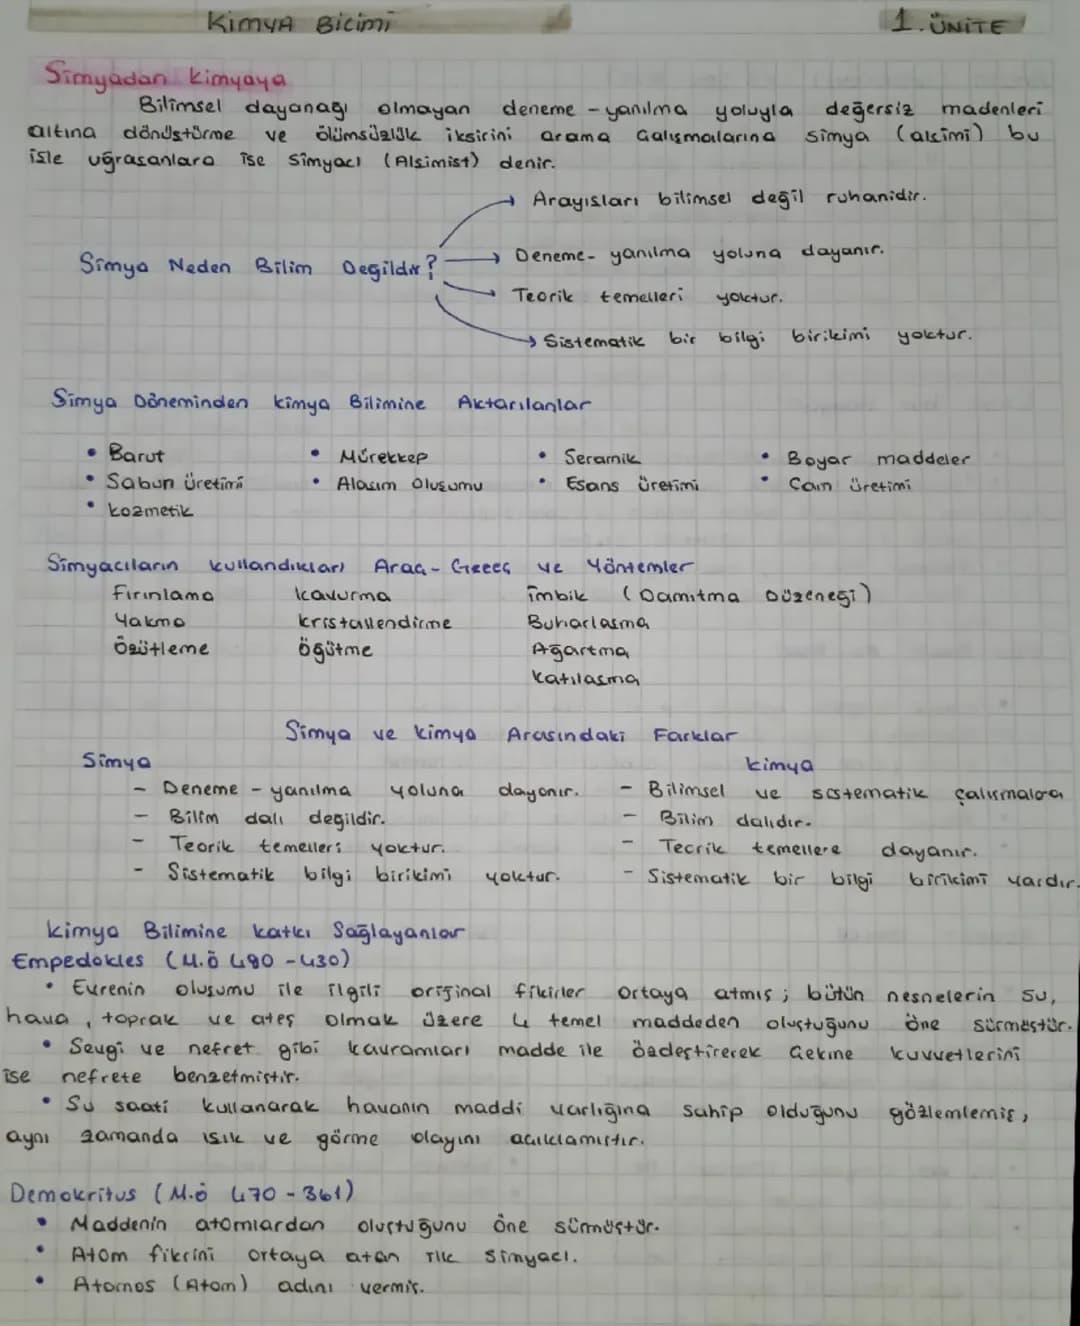 Kimya Bilimi 1. ÜNİTE
Simyadan Kimyaya
Bilimsel dayanağı olmayan deneme - yanılma yoluyla değersiz madenleri
altına dönüştürme ve ölümsüzlük iksirini arama çalışmalarına simya (alşimi) bu
işle uğraşanlara ise simyacı (Alşimist) denir.
Arayışları bilimsel değil ruhanidir.
Simya Neden Bilim Değildir?
Deneme- yanılma yoluna dayanır.
Teorik temelleri yoktur.
Sistematik bir bilgi birikimi yoktur.
Simya Döneminden kimya Bilimine Aktarılanlar
• Barut • Mürekkep • Seramik • Boyar maddeler
• Sabun üretimi • Alaşım Oluşumu • Esans üretimi • Cam üretimi
• kozmetik
Simyacıların kullandıkları Araç - Gereç ve Yöntemler
Fırınlama kavurma imbik (Damıtma Düzeneği)
Yakma kristallendirme Buharlaşma
Özütleme öğütme Ağartma
katılaşma
Simya ve kimya Arasındaki Farklar
Simya kimya
- Deneme - yanılma yoluna dayanır. - Bilimsel ve sistematik çalışmalara
- Bilim dalı değildir. - Bilim dalıdır.
- Teorik temelleri yoktur. - Teorik temellere dayanır.
- Sistematik bilgi birikimi yoktur. - Sistematik bir bilgi birikimi vardır.
kimya Bilimine katkı Sağlayanlar
Empedokles (M.ö 490 - 430)
• Evrenin oluşumu ile ilgili orijinal fikirler ortaya atmış; bütün nesnelerin su,
hava, toprak ve ateş olmak üzere 4 temel maddeden oluştuğunu öne sürmüştür.
• Sevgi ve nefret gibi kavramları madde ile özdeştirerek çekme kuvvetlerini
ise nefrete benzetmiştir.
• Su saati kullanarak havanın maddi varlığına sahip olduğunu gözlemlemiş,
aynı zamanda ışık ve görme olayını açıklamıştır.
Demokritus (M.ö 470 - 361)
• Maddenin atomlardan oluştuğunu öne sürmüştür.
• Atom fikrini ortaya atan ilk simyacı.
• Atomos (Atom) adını vermiş.